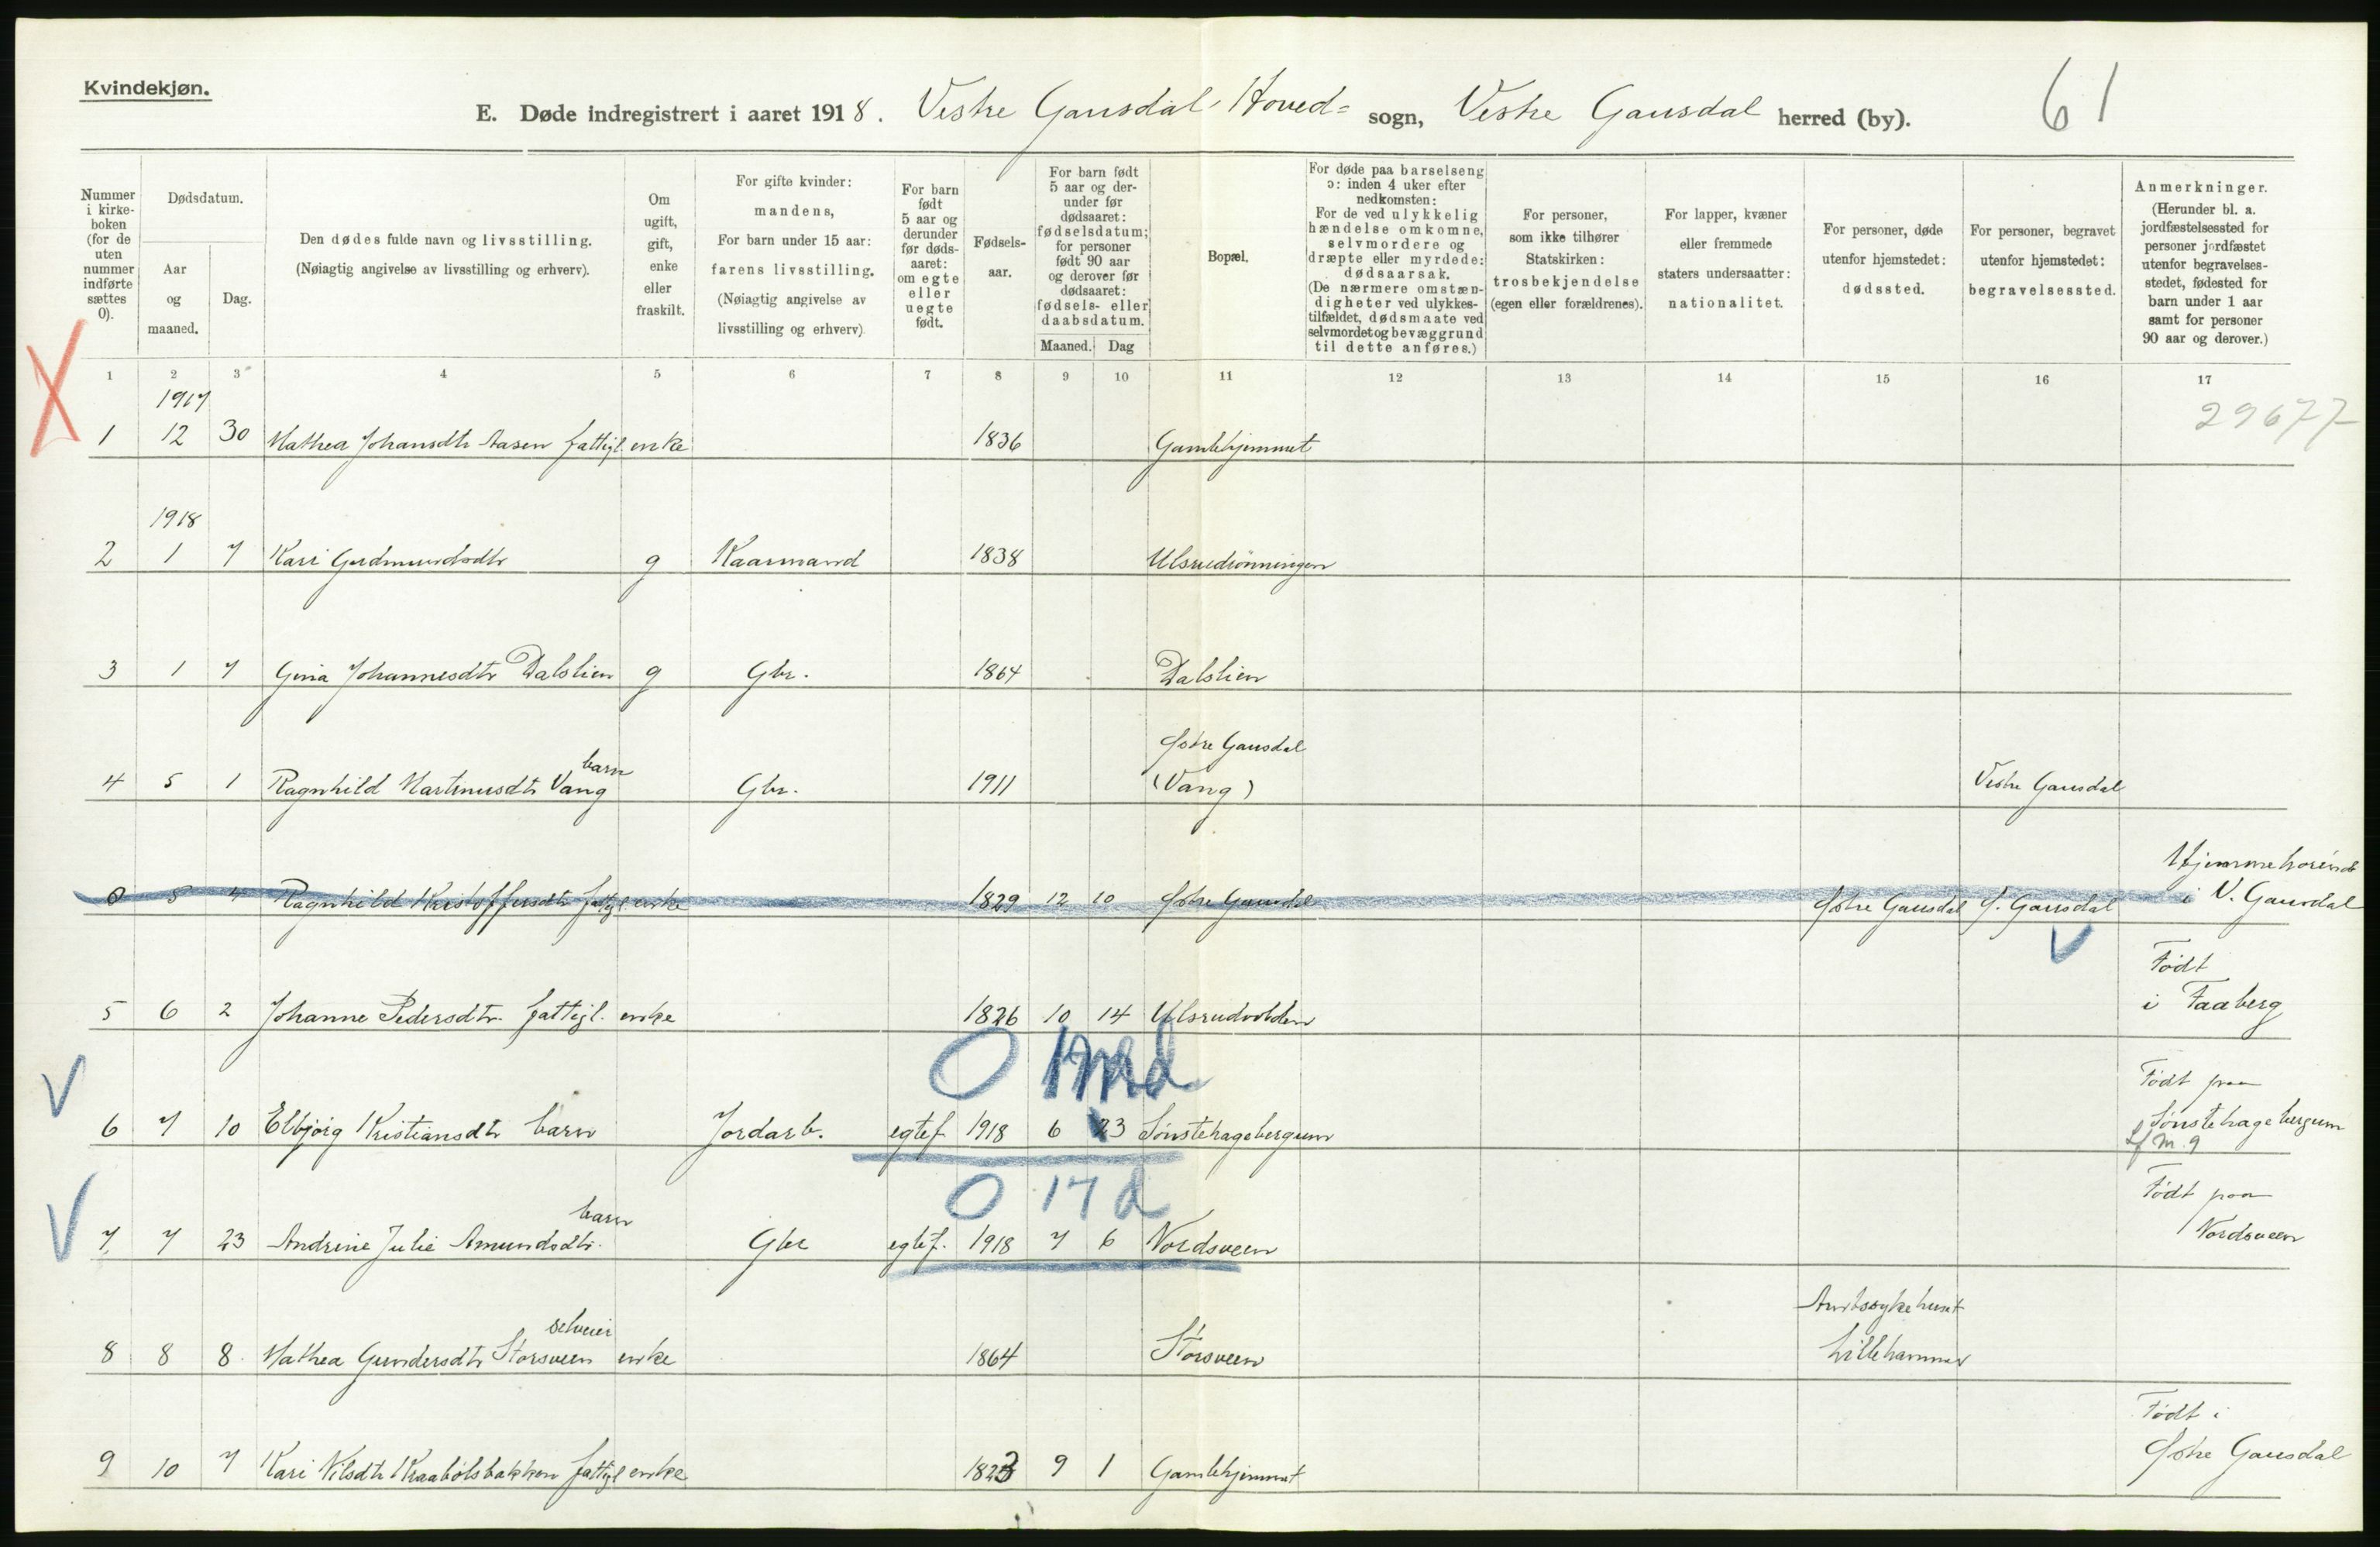 Kvindekjøn.
E. Døde indregistrert i aaret 1918. Vestre Gausdal Hoved= sogn, Vestre Gausdal herred (by).
61
Nummer i kirke- boken (for de uten nummer indførte sættes 0).
Dødsdatum.
Aar og maaned.
Dag.
Den dødes fulde navn og livsstilling.
(Nøiagtig angivelse av livsstilling og erhverv).
Om ugift, gift, enke eller fraskilt.
For gifte kvinder: mandens,
For barn under 15 aar: farens livsstilling.
(Nøiagtig angivelse av livsstilling og erhverv)
For barn født 5 aar og derunder før døds- aaret: om egte eller uegte født.
Fødsels- aar.
For barn født 5 aar og der- under før dødsaaret: fødselsdatum; for personer født 90 aar og derover før dødsaaret: fødsels- eller daabsdatum.
Maaned. Dag
Bopæl.
For døde paa barselseng ɔ: inden 4 uker efter nedkomsten:
For de ved ulykkelig hændelse omkomne, selvmordere og dræpte eller myrdede: dødsaarsak.
(De nærmere omstæn- digheter ved ulykkes- tilfældet, dødsmaate ved selvmordet og bevæggrund til dette anføres.)
For personer, som ikke tilhører Statskirken: trosbekjendelse (egen eller forældrenes).
For lapper, kvæner eller fremmede staters undersaatter: nationalitet.
For personer, døde utenfor hjemstedet: dødssted.
For personer, begravet utenfor hjemstedet: begravelsessted.
Anmerkninger.
(Herunder bl. a. jordfæstelsessted for personer jordfæstet utenfor begravelses- stedet, fødested for barn under 1 aar samt for personer 90 aar og derover.)
1 2 3 4 5 6 7 8 9 10 11 12 13 14 15 16 17
1917
29677
1 12 30 Mathea Johansdtr Aasen fattigl. enke 1836 Gamlehjemmet
1918
2 1 7 Kari Gudmundsdtr g Kaarmand 1838 Ulsrudrönningen
3 1 7 Gina Johannesdtr Dalslien g Gbr. 1864 Dalslien
4 5 1 Ragnhild Martinusdtr Vang barn Gbr. 1911 Østre Gausdal (Vang) Vestre Gausdal
0 5 4 Ragnhild Kristoffersdtr fattigl enke 1829 12 10 Østre Gausdal Østre Gausdal Ø. Gausdal Hjemmehörende i V. Gausdal
5 6 2 Johanne Pedersdtr. fattigl. enke 1826 10 14 Ulsrudvolden Födt i Faaberg
0 17 d
6 7 10 Elbjörg Kristiansdtr barn Jordarb. egtef 1918 6 23 Sönstehagebergum Födt paa Sönstehagebergum
Lf M. 9
0 17 d
7 7 23 Andrine Julie Amundsdtr. barn Gbr egtef. 1918 7 6 Nordsveen Födt paa Nordsveen
8 8 8 Mathea Gundersdtr Storsveen selveier enke 1864 Storsveen Amtssykehuset Lillehammer
9 10 7 Kari Nilsdtr Kraabölsbakken fattigl enke 1823 9 1 Gamlehjemmet Födt i Østre Gausdal